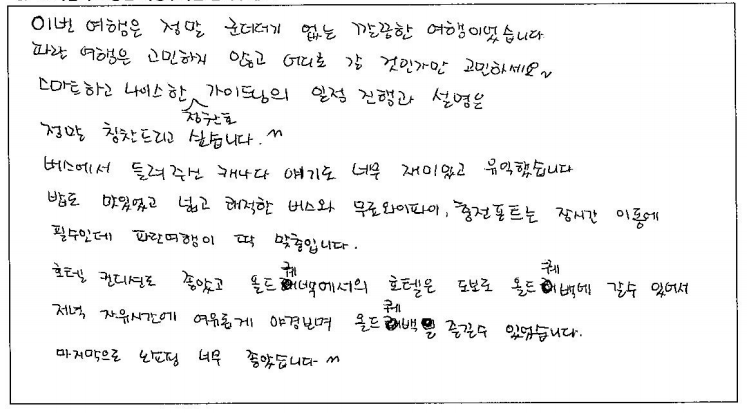 이번 여행은 정말 군더더기 없는 깔끔한 여행이었습니다
파란 여행은 고민하지 않고 어디로 갈 것인가만 고민하세요~
스마트하고 나이스한 정우찬호 가이드님의 일정 진행과 설명은
정말 칭찬드리고 싶습니다. ^^
버스에서 들려주신 캐나다 얘기도 너무 재미있고 유익했습니다
밥도 맛있었고 넓고 쾌적한 버스와 무료와이파이, 충전포트는 장시간 이동에
필수인데 파란여행이 딱 맞춤입니다.
호텔 컨디션로 좋았고 올드퀘벡에서의 호텔은 도보로 올드퀘벡에 갈수 있어서
저녁 자유시간에 여유롭게 야경보며 올드퀘백을 즐길수 있었습니다.
마지막으로 노쇼핑 너무 좋았습니다 ^^